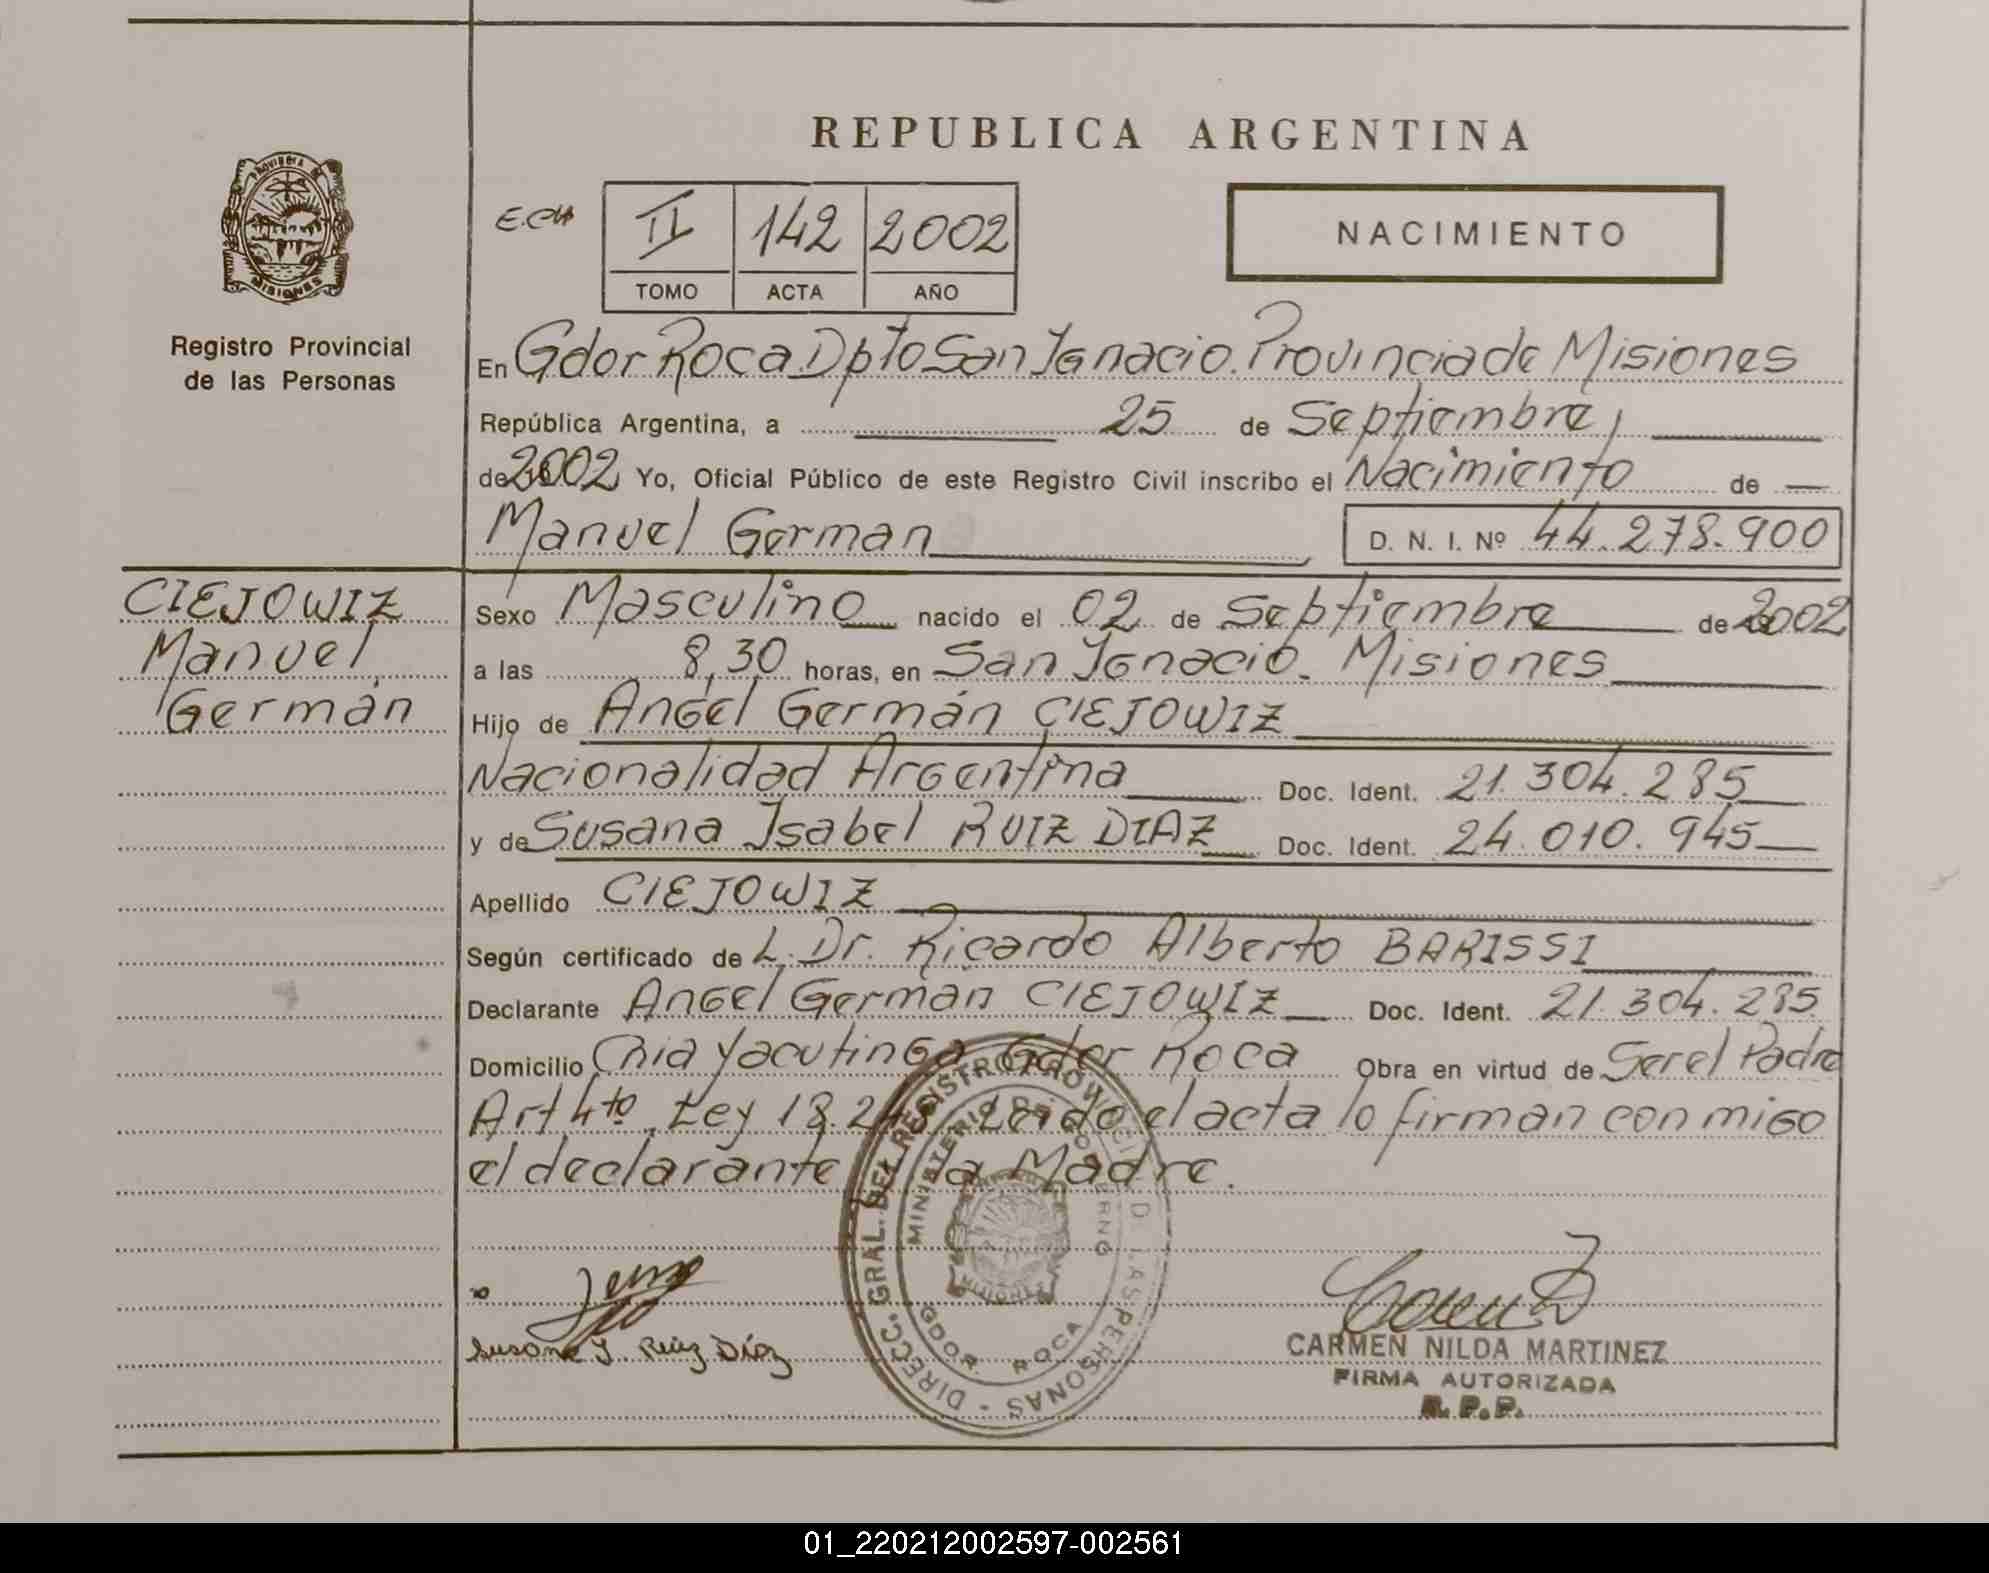 REPUBLICA ARGENTINA
PROVINCIA DE
MISIONES
Registro Provincial
de las Personas
E.CH
II 142 2002
TOMO ACTA AÑO
NACIMIENTO
En Gdor Roca Dpto San Ignacio. Provincia de Misiones
República Argentina, a 25 de Septiembre,
de 2002 Yo, Oficial Público de este Registro Civil inscribo el Nacimiento de
Manuel German D. N. I. Nº 44.278.900
CIEJOWIZ
Manuel
Germán
Sexo Masculino nacido el 02 de Septiembre de 2002
a las 8,30 horas, en San Ignacio. Misiones
Hijo de Angel Germán CIEJOWIZ
Nacionalidad Argentina Doc. Ident. 21.304.285
y de Susana Isabel RUIZ DIAZ Doc. Ident. 24.010.945
Apellido CIEJOWIZ
Según certificado de L. Dr. Ricardo Alberto BARISSI
Declarante Angel German CIEJOWIZ Doc. Ident. 21.304.285
Domicilio Cnia Yacutinga Gdor Roca Obra en virtud de Ser el Padre
Art 4to. Ley 18.248. Leido el acta lo firman con migo
el declarante la Madre.
DIREC. GRAL. DEL REGISTRO PROVINCIAL D LAS PERSONAS -
MINISTERIO DE GOBIERNO
MISIONES
GDOR. ROCA
Susana I. Ruiz Díaz
CARMEN NILDA MARTINEZ
FIRMA AUTORIZADA
R.P.P.
01_220212002597-002561